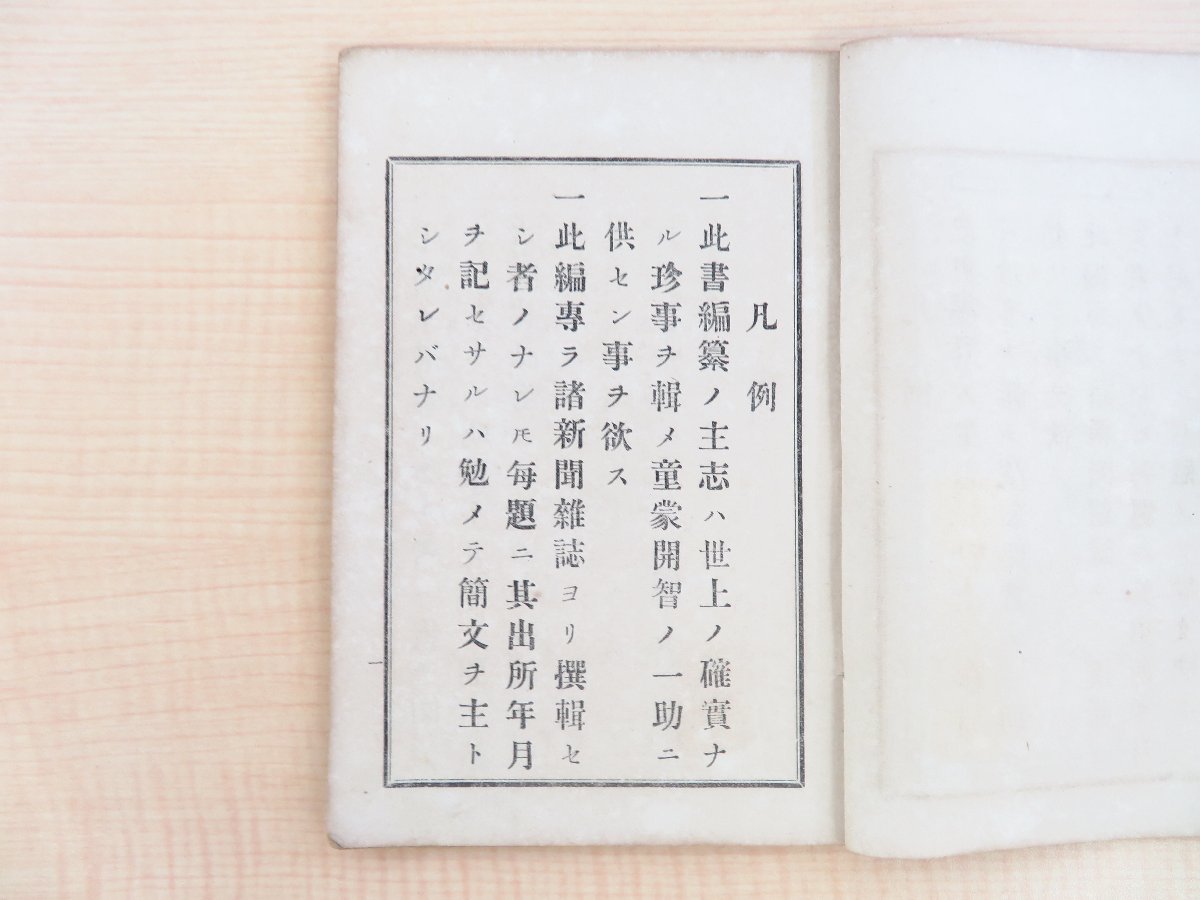 凡例
一此書編纂ノ主志ハ世上ノ確實ナ
ル珍事ヲ輯メ童蒙開智ノ一助ニ
供セン事ヲ欲ス
一此編專ラ諸新聞雜誌ヨリ撰輯セ
シ者ノナレ𪜈每題ニ其出所年月
ヲ記セサルハ勉メテ簡文ヲ主ト
シタレバナリ
一